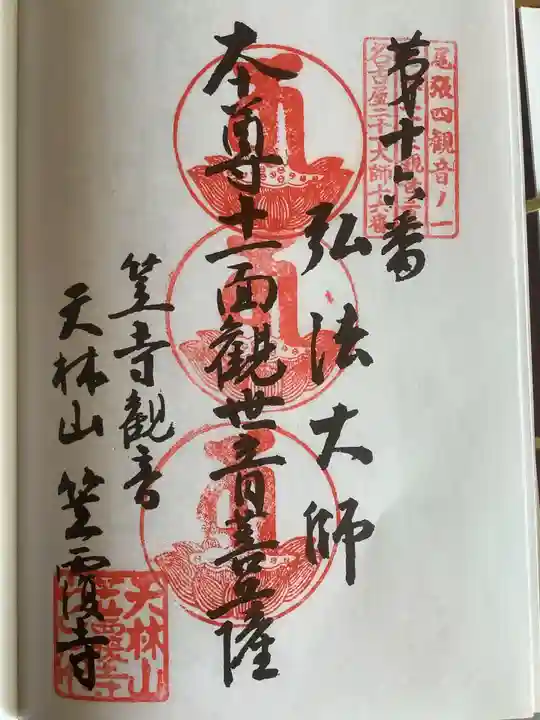 尾張四観音ノ一
名古屋二十一大師十六番
第十六番
弘法大師
本尊十一面観世音菩薩
笠寺観音
天林山 笠覆寺
天林山
笠覆寺